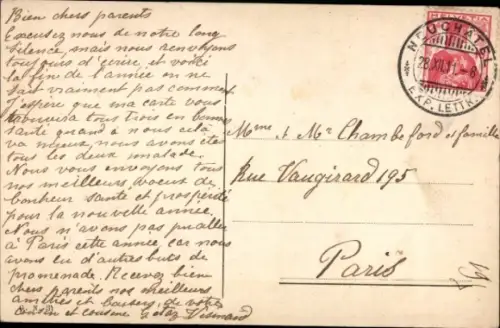 Bien chers parents
Excusez nous de notre long
silence, mais nous renvoyons
toujours d'écrire, et voilà
la fin de l'année on ne
sait vraiment pas comment
J'espère que ma carte vous
trouvera tous trois en bonne
santé quand à nous cela
va mieux, nous avons été
tous les deux malade.
Nous vous envoyons tous
nos meilleurs voeux de
bonheur santé et prospérité
pour la nouvelle année.
Nous n'avons pas pu aller
à Paris cette année, car nous
avons eu d'autres buts de
promenade. Recevez bien
chers parents nos meilleurs
amitiés et baisers, de votre
cousin et cousine
Mme & Mr Chamdeford et famille
Rue Vaugirard 195
Paris
NEUCHATEL
28.XII.11.-6
EXP. LETTR.
HELVETIA